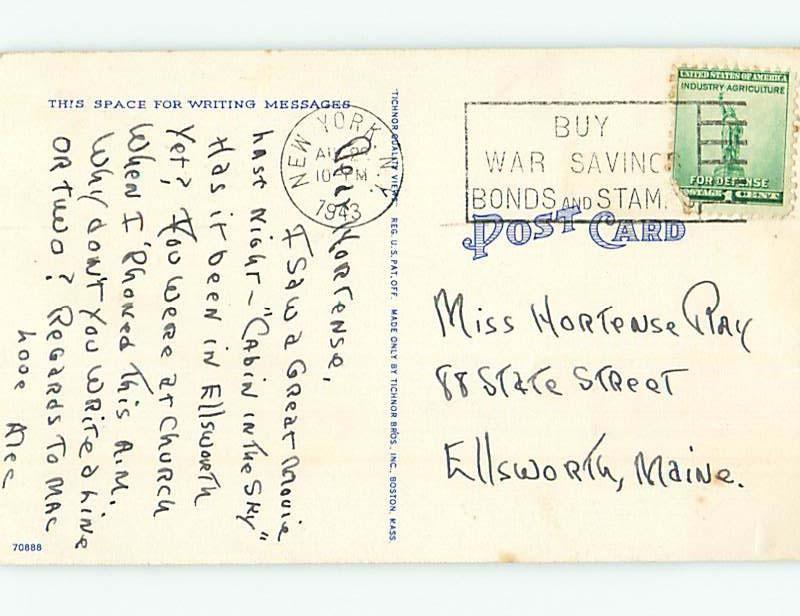 THIS SPACE FOR WRITING MESSAGES
Dear Hortense,
I Saw a Great Movie
Last Night - "Cabin in the Sky"
Has it been in Ellsworth
Yet? You were at Church
When I 'Phoned This A.M.
Why don't You Write a Line
or Two? Regards To Mac
Love Alec
70888
TICHNOR QUALITY VIEWS REG. U.S. PAT. OFF. MADE ONLY BY TICHNOR BROS. INC., BOSTON, MASS.
NEW YORK, N.Y.
10 PM
1943
BUY
WAR SAVINGS
BONDS AND STAM
UNITED STATES OF AMERICA
INDUSTRY AGRICULTURE
FOR DEFENSE
POSTAGE 1 CENT
POST CARD
Miss Hortense Ray
88 State Street
Ellsworth, Maine.